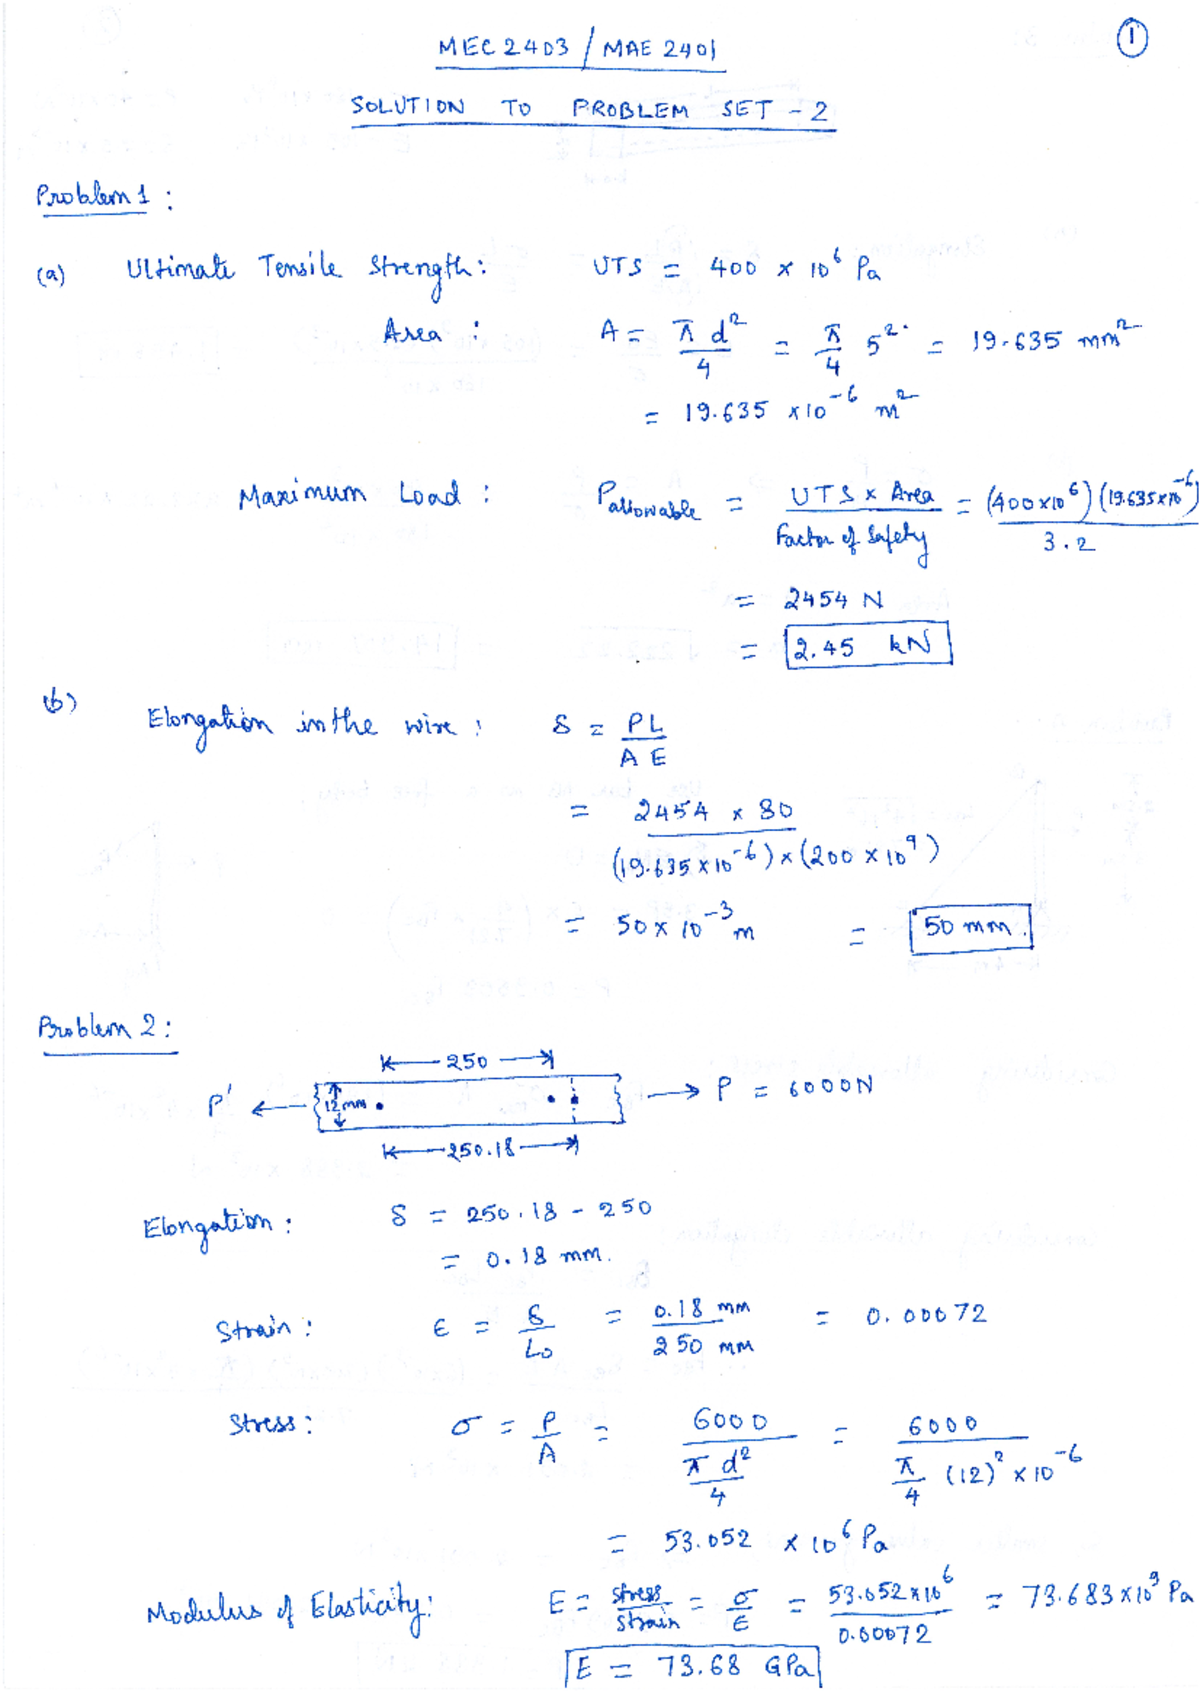 ①
MEC 2403 / MAE 2401
SOLUTION TO PROBLEM SET - 2
Problem 1 :
(a) Ultimate Tensile Strength : UTS = 400 × 10⁶ Pa
Area : A = π d² / 4 = π/4 5² = 19.635 mm²
= 19.635 × 10⁻⁶ m²
Maximum Load : P allowable = UTS × Area / Factor of Safety = (400×10⁶) (19.635×10⁻⁶) / 3.2
= 2454 N
= 2.45 kN
(b) Elongation in the wire : δ = PL / AE
= 2454 × 80 / (19.635 × 10⁻⁶) × (200 × 10⁹)
= 50 × 10⁻³ m = 50 mm.
Problem 2 :
250
P' 12 mm P = 6000N
250.18
Elongation : δ = 250.18 - 250
= 0.18 mm.
Strain : ε = δ / L₀ = 0.18 mm / 250 mm = 0.00072
Stress : σ = P / A = 6000 / π d² / 4 = 6000 / π/4 (12)² × 10⁻⁶
= 53.052 × 10⁶ Pa
Modulus of Elasticity : E = stress / strain = σ / ε = 53.052 × 10⁶ / 0.00072 = 73.683 × 10⁹ Pa
E = 73.68 GPa